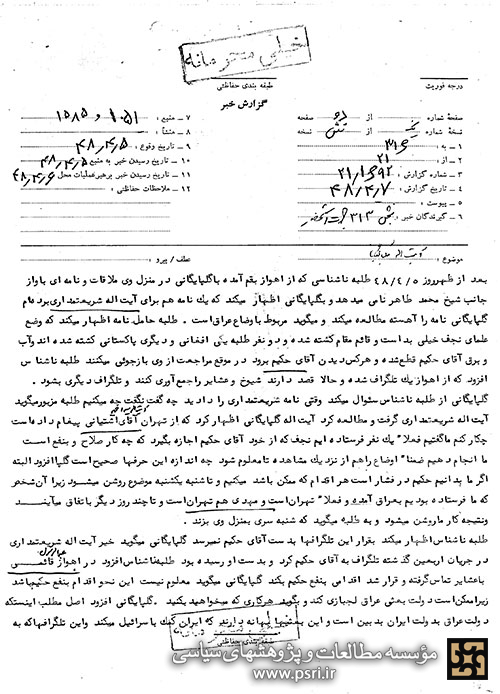 خیلی محرمانه
درجه فوریت
طبقه بندی حفاظتی
گزارش خبر
صفحه شماره یک از دو صفحه
نسخه شماره از شش نسخه
۱ - به : ۳۱۶
۲ - از : ۲۱
۳ - شماره گزارش :
۴ - تاریخ گزارش : ۴۸/۴/۷
۵ - پیوست :
۶ - گیرندگان خبر : بخش ۳۱۲
۷ - منبع : ۱۰۵۱ و ۱۵۸۵
۸ - منشأ :
۹ - تاریخ وقوع : ۴۸/۴/۵
۱۰ - تاریخ رسیدن خبر به منبع ۴۸/۴/۵
۱۱ - تاریخ رسیدن خبر برهبر عملیات محل ۴۸/۴/۶
۱۲ - ملاحظات حفاظتی :
موضوع : آیت اله گلپایگانی
عطف / پیرو :
بعد از ظهر روز ۴۸/۴/۵ طلبه ناشناسی که از اهواز بقم آمده با گلپایگانی در منزل وی ملاقات و نامه ای باو از
جانب شیخ محمد طاهر نامی میدهد و بگلپایگانی اظهار میکند که یک نامه هم برای آیت اله شریعتمداری برده ام
گلپایگانی نامه را آهسته مطالعه میکند و میگوید مربوط باوضاع عراق است . طلبه حامل نامه اظهار میکند که وضع
علمای نجف خیلی بد است و قائم مقام کشته شده و دو نفر طلبه یکی افغانی و دیگری پاکستانی کشته شده اند و آب
و برق آقای حکیم قطع شده و هرکس بدیدن آقای حکیم برود در موقع مراجعت از وی بازجوئی میکنند طلبه ناشناس
افزود که از اهواز یک تلگراف شده و حالا قصد دارند شیوخ و عشایر را جمع آوری کنند و تلگراف دیگری بشود .
گلپایگانی از طلبه ناشناس سئوال میکند وقتی نامه شریعتمداری را دادید چه گفت نگفت چه میکنیم طلبه مزبور میگوید
آیت اله شریعتمداری گرفت و مطالعه کرد آیت اله گلپایگانی اظهار کرد که از تهران آقای آشتیانی پیغام داده است
چکار کنم ما گفتیم فعلا یک نفر فرستاده ایم نجف که از خود آقای حکیم اجازه بگیرد که چه کار صلاح و بنفع است
ما انجام دهیم ضمنا اوضاع را هم از نزدیک مشاهده تا معلوم شود چه اندازه این حرفها صحیح است گلپا افزود البته
اگر ما بدانیم حکیم در فشار است هر اقدام که ممکن باشد میکنیم و تا شنبه یکشنبه موضوع روشن میشود زیرا آن شخص
که ما فرستاده بودیم بعراق آمده و فعلا تهران است و مهدی هم تهران است و تا چند روز دیگر باتفاق میآیند
و نتیجه کار ما روشن میشود و به طلبه میگوید که شنبه سری بمنزل وی بزند .
طلبه ناشناس اظهار میکند بقرار این تلگرافها بدست آقای حکیم نمیرسد گلپایگانی میگوید خیر آیت اله شریعتمداری
در جریان اربعین گذشته تلگراف به آقای حکیم کرد و بدست او رسیده بود طلبه ناشناس افزود در اهواز قائمی
با عشایر تماس گرفته و قرار شد اقدامی بنفع حکیم بکند گلپایگانی میگوید معلوم نیست این نحو اقدام بنفع حکیم باشد
زیرا ممکن است دولت بعثی عراق لجبازی کند و بگوید هر کاری که میخواهید بکنید . گلپایگانی افزود اصل مطلب اینستکه
دولت عراق بدولت ایران بدبین است و این بعثیها بهانه دارند که ایران کمک با سرائیل میکند و این تلگرافها که به
خیلی محرمانه
طبقه بندی حفاظتی
مؤسسه مطالعات و پژوهشهای سیاسی
www.psri.ir